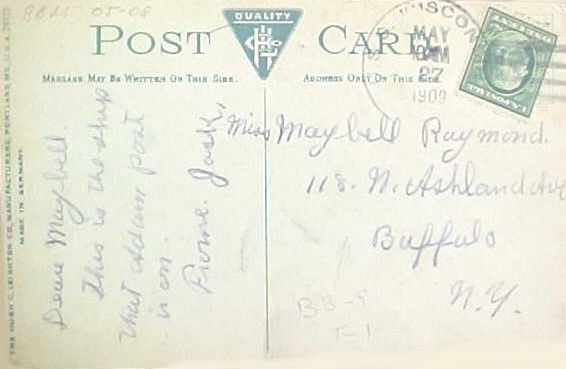 BB25 05-08
POST CARD
QUALITY
MESSAGE MAY BE WRITTEN ON THIS SIDE.
ADDRESS ONLY ON THIS SIDE.
MAY
27
1909
Dear Maybell.
This is the ship
that Adam Post
is on.
From. Jack.
Miss Maybell Raymond.
118. N. Ashland Ave
Buffalo
N.Y.
THE HUGH C. LEIGHTON CO., MANUFACTURERS, PORTLAND, ME., U.S.A.
MADE IN GERMANY.